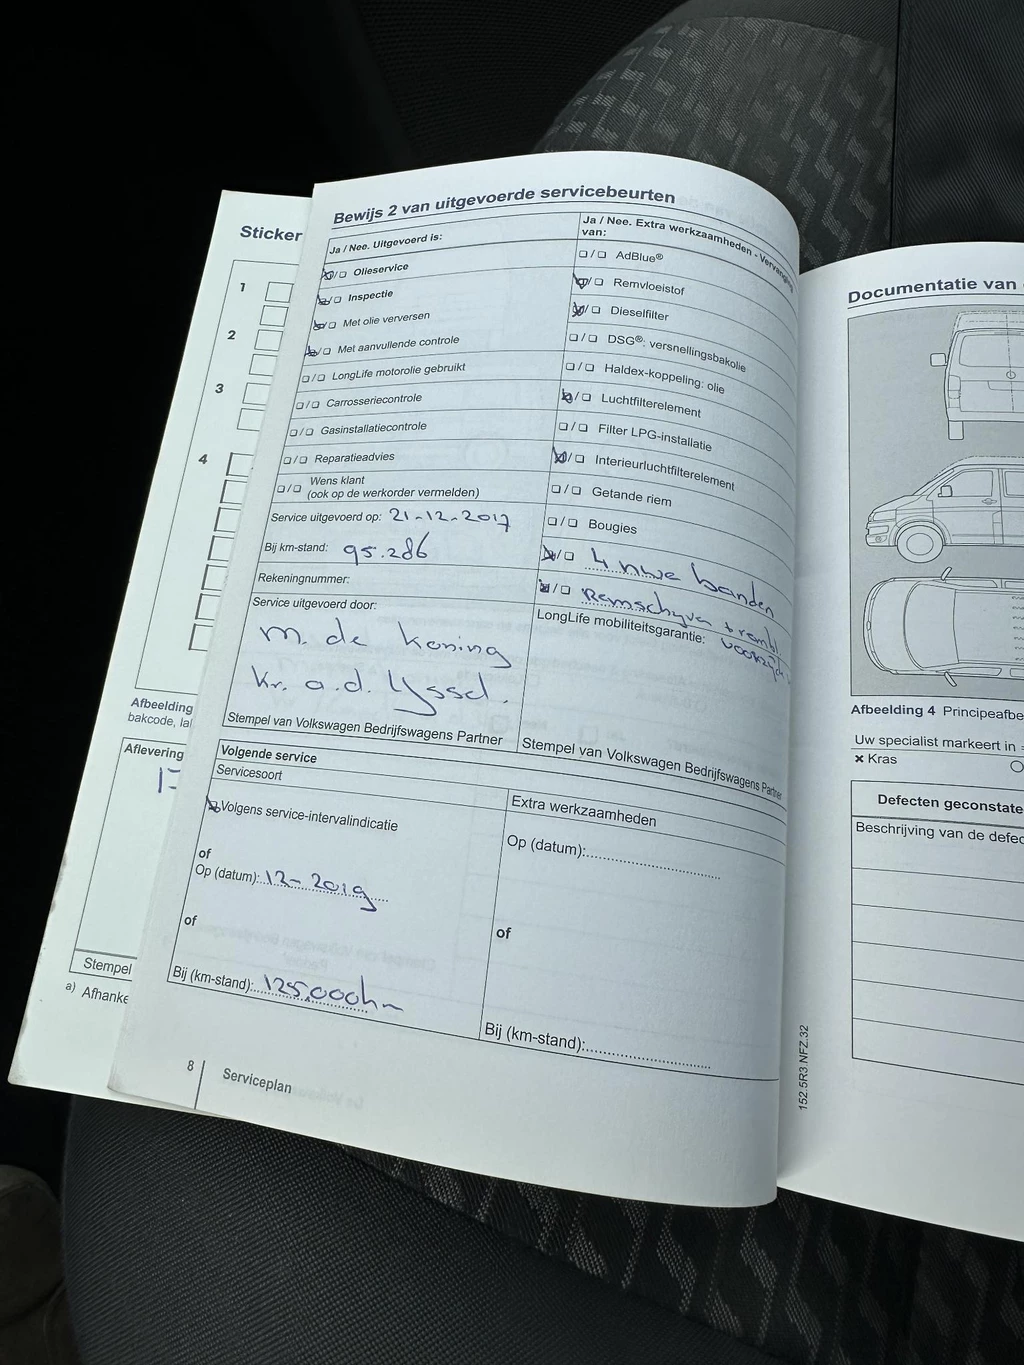 Sticker
1
2
3
4
Afbeelding
bakcode, la
Aflevering
Stempel
a) Afhanke
Bewijs 2 van uitgevoerde servicebeurten
Ja / Nee. Uitgevoerd is:
☒/☐ Olieservice
☒/☐ Inspectie
☒/☐ Met olie verversen
☒/☐ Met aanvullende controle
☐/☐ LongLife motorolie gebruikt
☐/☐ Carrosseriecontrole
☐/☐ Gasinstallatiecontrole
☐/☐ Reparatieadvies
☐/☐ Wens klant
(ook op de werkorder vermelden)
Service uitgevoerd op: 21-12-2017
Bij km-stand: 95.286
Rekeningnummer:
Service uitgevoerd door:
M. de Koning
Kr. a.d. IJssel.
Stempel van Volkswagen Bedrijfswagens Partner
Ja / Nee. Extra werkzaamheden - Vervanging
van:
☐/☐ AdBlue®
☒/☐ Remvloeistof
☒/☐ Dieselfilter
☐/☐ DSG®: versnellingsbakolie
☐/☐ Haldex-koppeling: olie
☒/☐ Luchtfilterelement
☐/☐ Filter LPG-installatie
☒/☐ Interieurluchtfilterelement
☐/☐ Getande riem
☐/☐ Bougies
☒/☐ 4 nwe banden
☒/☐ Remschyven + rembl.
LongLife mobiliteitsgarantie: voorzijde
Stempel van Volkswagen Bedrijfswagens Partner
Volgende service
Servicesoort
☒ Volgens service-intervalindicatie
of
Op (datum): 12-2019
of
Bij (km-stand): 125.000km
Extra werkzaamheden
Op (datum):
of
Bij (km-stand):
8
Serviceplan
152.5R3.NFZ.32
Documentatie van
Afbeelding 4 Principeafbe
Uw specialist markeert in
× Kras
Defecten geconstate
Beschrijving van de defec